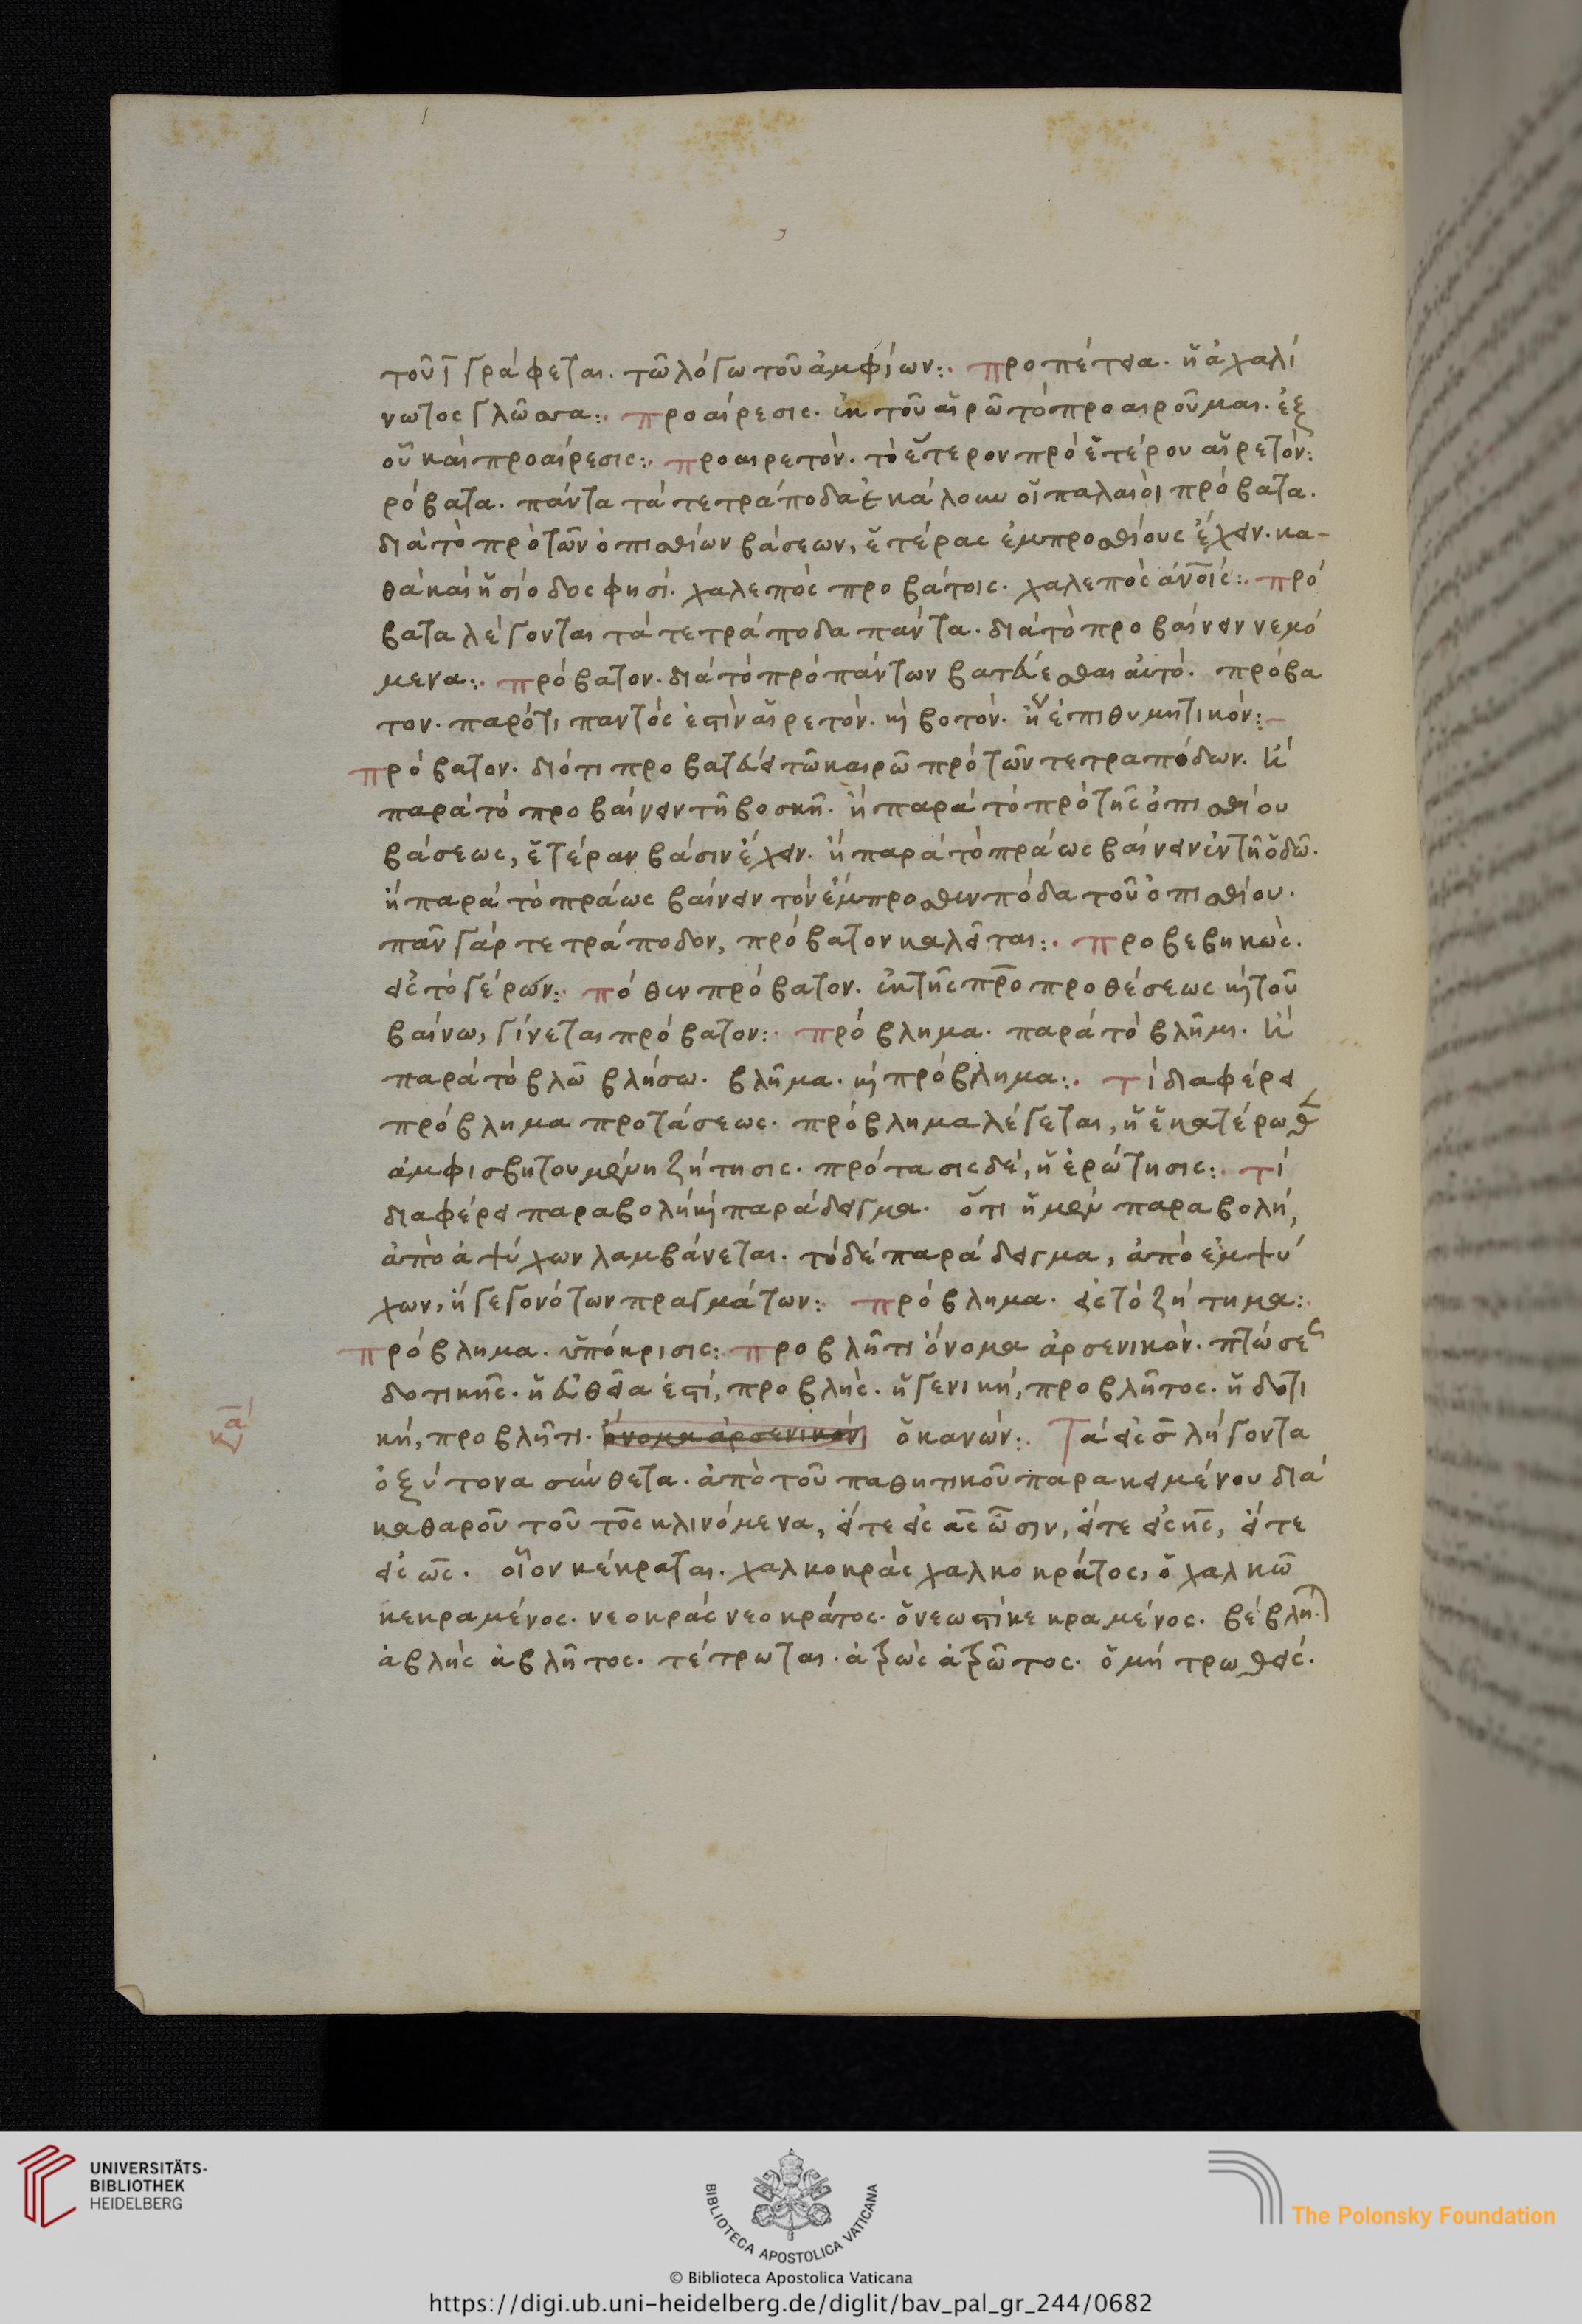 τοῦ ῑ γράφεται. τῶ λόγω τοῦ ἀμφίων:. προπέτεια. ἡ ἀχαλί
νωτος γλῶσσα:. προαίρεσις. ἐκ τοῦ αἱρῶ τὸ προαιροῦμαι. ἐξ
οὗ καὶ προαίρεσις:. προαιρετόν. τὸ ἕτερον πρὸ ἑτέρου αἱρετόν:
ρόβατα. πάντα τὰ τετράποδα ἐκάλουν οἱ παλαιοὶ πρόβατα.
διὰ τὸ πρὸ τῶν ὀπισθίων βάσεων, ἑτέρας ἐμπροσθίους ἔχειν. κα-
θὰ καὶ ἡσίοδος φησί. χαλεπὸς προβάτοις. χαλεπὸς ἀν̅οις:. πρό
βατα λέγονται τὰ τετράποδα πάντα. διὰ τὸ προβαίνειν νεμό
μενα:. πρόβατον. διὰ τὸ πρὸ πάντων βατεύεσθαι αὐτό. πρόβα
τον. παρότι παντός ἐστὶν αἱρετόν. κὶ βοτόν. ἢ ἐπιθυμητικόν:
πρόβατον. διότι προβατεύει τῶ καιρῶ πρὸ τῶν τετραπόδων. ἢ
παρὰ τὸ προβαίνειν τῆ βοσκῆ. ἢ παρὰ τὸ πρὸ τῆς ὀπισθίου
βάσεως, ἑτέραν βάσιν ἔχειν. ἢ παρὰ τὸ πράως βαίνειν ἐν τῆ ὁδῶ.
ἢ παρὰ τὸ πράως βαίνειν τὸν ἔμπροσθεν πόδα τοῦ ὀπισθίου.
πᾶν γὰρ τετράποδον, πρόβατον καλεῖται:. προβεβηκώς.
εἰς τὸ γέρων:. πόθεν πρόβατον. ἐκ τῆς πρ̅ο προθέσεως κὶ τοῦ
βαίνω, γίνεται πρόβατον:. πρόβλημα. παρὰ τὸ βλῆμι. ἢ
παρὰ τὸ βλῶ βλήσω. βλῆμα. κὶ πρόβλημα:. τί διαφέρει
πρόβλημα προτάσεως. πρόβλημα λέγεται, ἡ ἑκατέρωθ
ἀμφισβητουμένη ζήτησις. πρότασις δὲ, ἡ ἐρώτησις:. τί
διαφέρει παραβολὴ κὶ παράδειγμα. ὅτι ἡ μὲν παραβολή,
ἀπὸ ἀψύχων λαμβάνεται. τὸ δὲ παράδειγμα, ἀπὸ ἐμψύ
χων, ἢ γεγονότων πραγμάτων:. πρόβλημα. εἰς τὸ ζήτημα:.
πρόβλημα. ὑπόκρισις:. προβλῆτι ὄνομα ἀρσενικόν. πτώσεως
δοτικῆς. ἡ εὐθεῖα ἐστί, προβλής. ἡ γενική, προβλῆτος. ἡ δοτι
κή, προβλῆτι. ὄνομα ἀρσενικόν ὁ κανών:. Τὰ εἰς σ̅ λήγοντα
ὀξύτονα σύνθετα. ἀπὸ τοῦ παθητικοῦ παρακειμένου διὰ
καθαροῦ τοῦ το̅ς κλινόμενα, εἴτε εἰς α̅ς ὦσιν, εἴτε εἰς η̅ς, εἴτε
εἰς ω̅ς. οἷον κέκραται. χαλκοκρὰς χαλκοκράτος, ὁ χαλκῶ
κεκραμένος. νεοκρὰς νεοκράτος. ὁ νεωστὶ κεκραμένος. βέβλη.
ἀβλὴς ἀβλῆτος. τέτρωται. ἀτρὼς ἀτρῶτος. ὁ μὴ τρωθείς.
κα
UNIVERSITÄTS-
BIBLIOTHEK
HEIDELBERG
BIBLIOTECA APOSTOLICA VATICANA
The Polonsky Foundation
© Biblioteca Apostolica Vaticana
https://digi.ub.uni-heidelberg.de/diglit/bav_pal_gr_244/0682